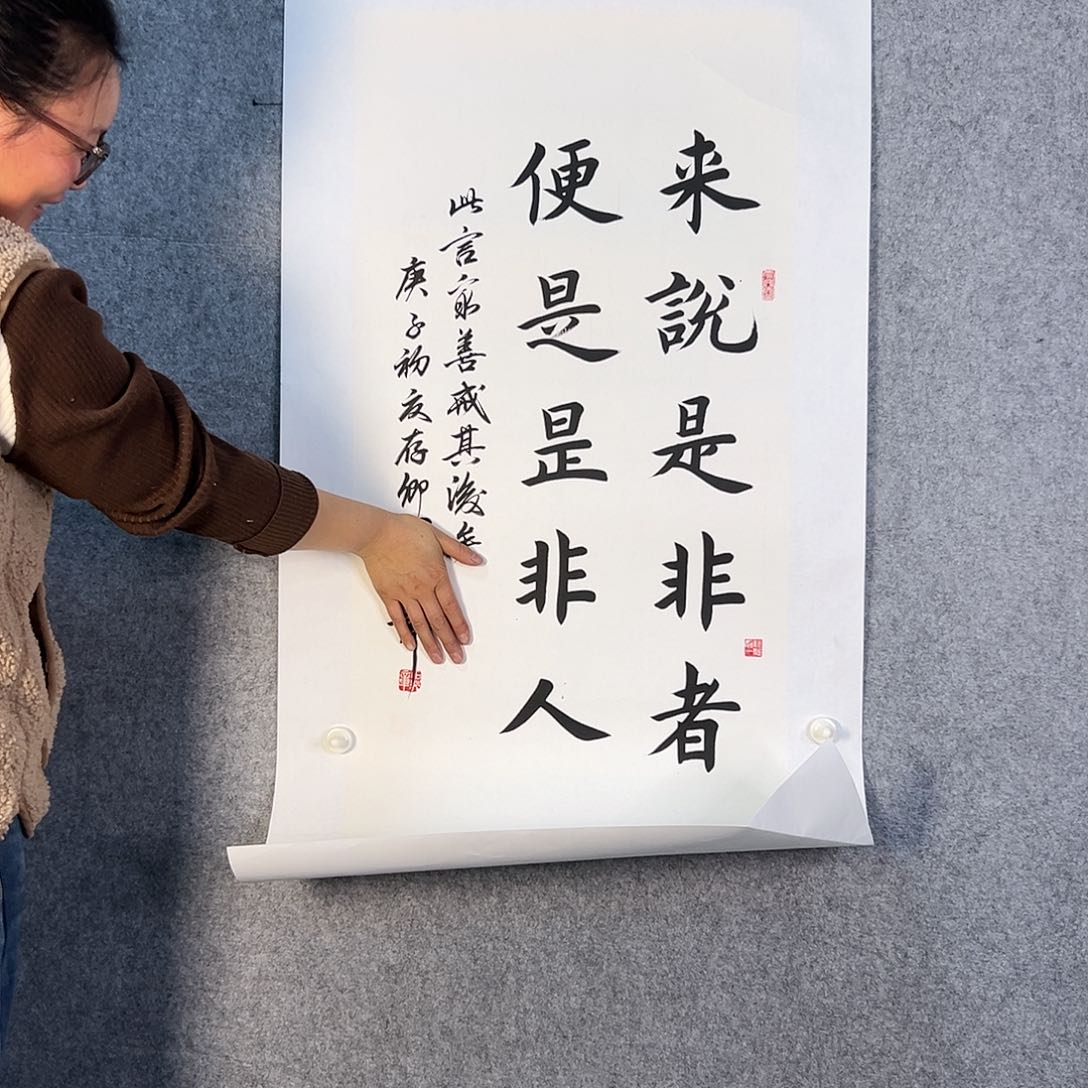 来說是非者
便是是非人
此言最善戒其後
庚子初夏存卿